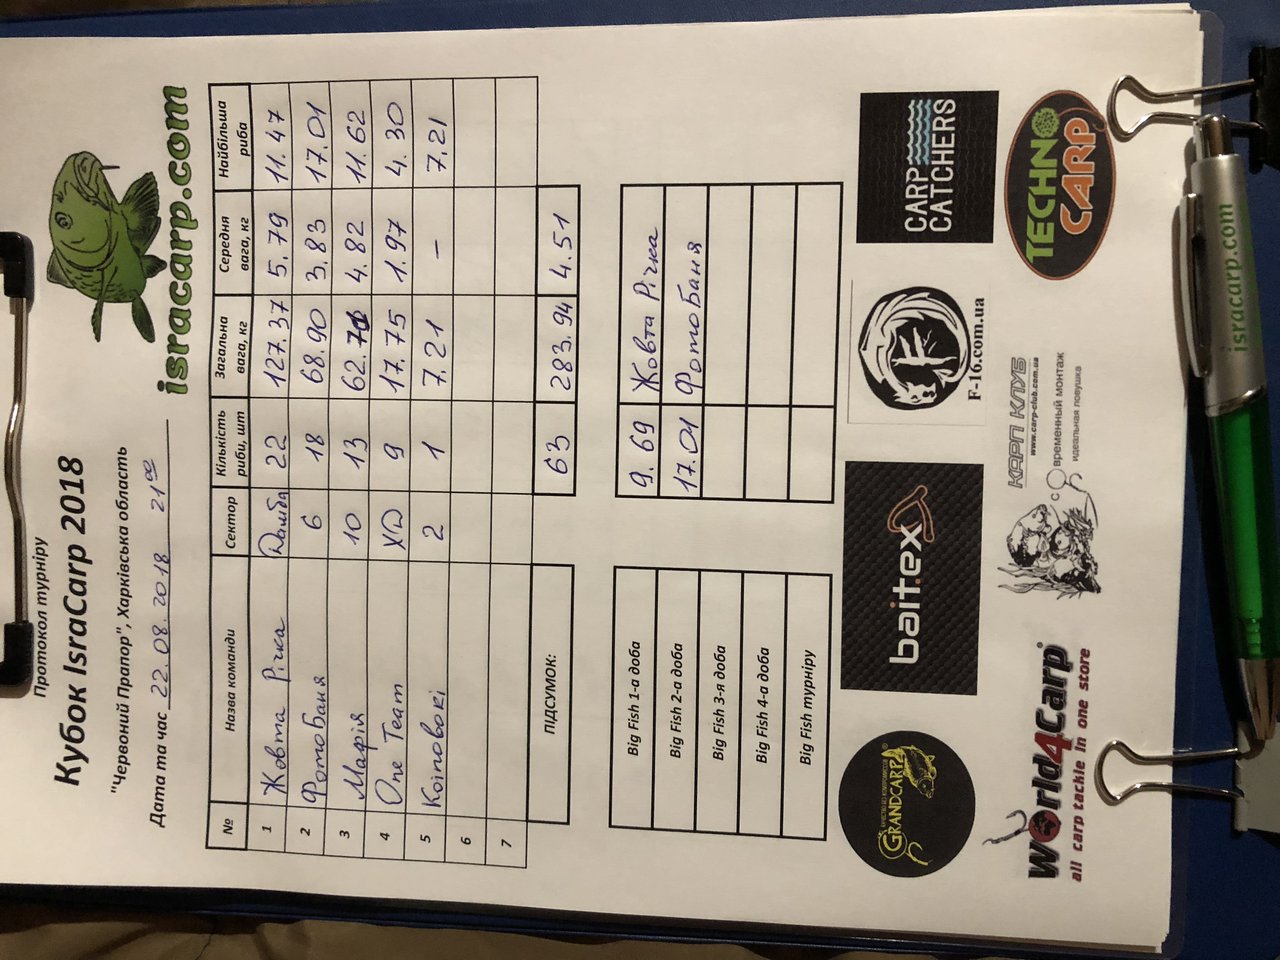 Протокол турніру
Кубок IsraCarp 2018
"Червоний Прапор", Харківська область
Дата та час 22.08.2018 21⁰⁰
isracarp.com
№ Назва команди Сектор Кількість риби, шт Загальна вага, кг Середня вага, кг Найбільша риба
1 Жовта Річка Дамба 22 127.37 5.79 11.47
2 ФотоБаня 6 18 68.90 3.83 17.01
3 Мафія 10 13 62.71 4.82 11.62
4 One Team ХО 9 17.75 1.97 4.30
5 Коіповокі 2 1 7.21 – 7.21
6
7
ПІДСУМОК: 63 283.94 4.51
Big Fish 1-а доба 9.69 Жовта Річка
Big Fish 2-а доба 17.01 ФотоБаня
Big Fish 3-я доба
Big Fish 4-а доба
Big Fish турніру
КАЧЕСТВО БЕЗ КОМПРОМИССОВ
GRANDCARP®
bait.ex
F-16.com.ua
CARP
CATCHERS
World4Carp®
all carp tackle in one store
КАРП КЛУБ
www.carp-club.com.ua
современный монтаж
идеальная ловушка
TECHNO
CARP
isracarp.com